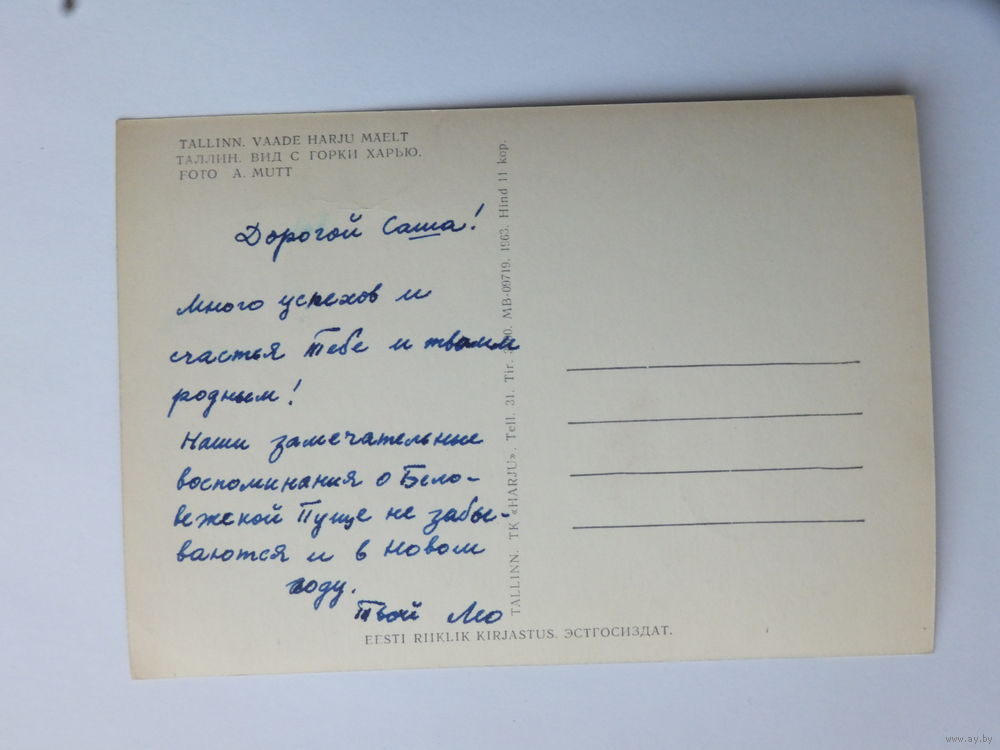 TALLINN. VAADE HARJU MÄELT
ТАЛЛИН. ВИД С ГОРКИ ХАРЬЮ.
FOTO A. MUTT
Дорогой Саша!
Много успехов и
счастья Тебе и твоим
родным!
Наши замечательные
воспоминания о Бело-
вежской Пуще не забы-
ваются и в Новом
году.
Твой Лео
TALLINN. TK «HARJU». Tell. 31. Tir. MB-09719. 1963. Hind 11 kop.
EESTI RIIKLIK KIRJASTUS. ЭСТГОСИЗДАТ.
www.ay.by